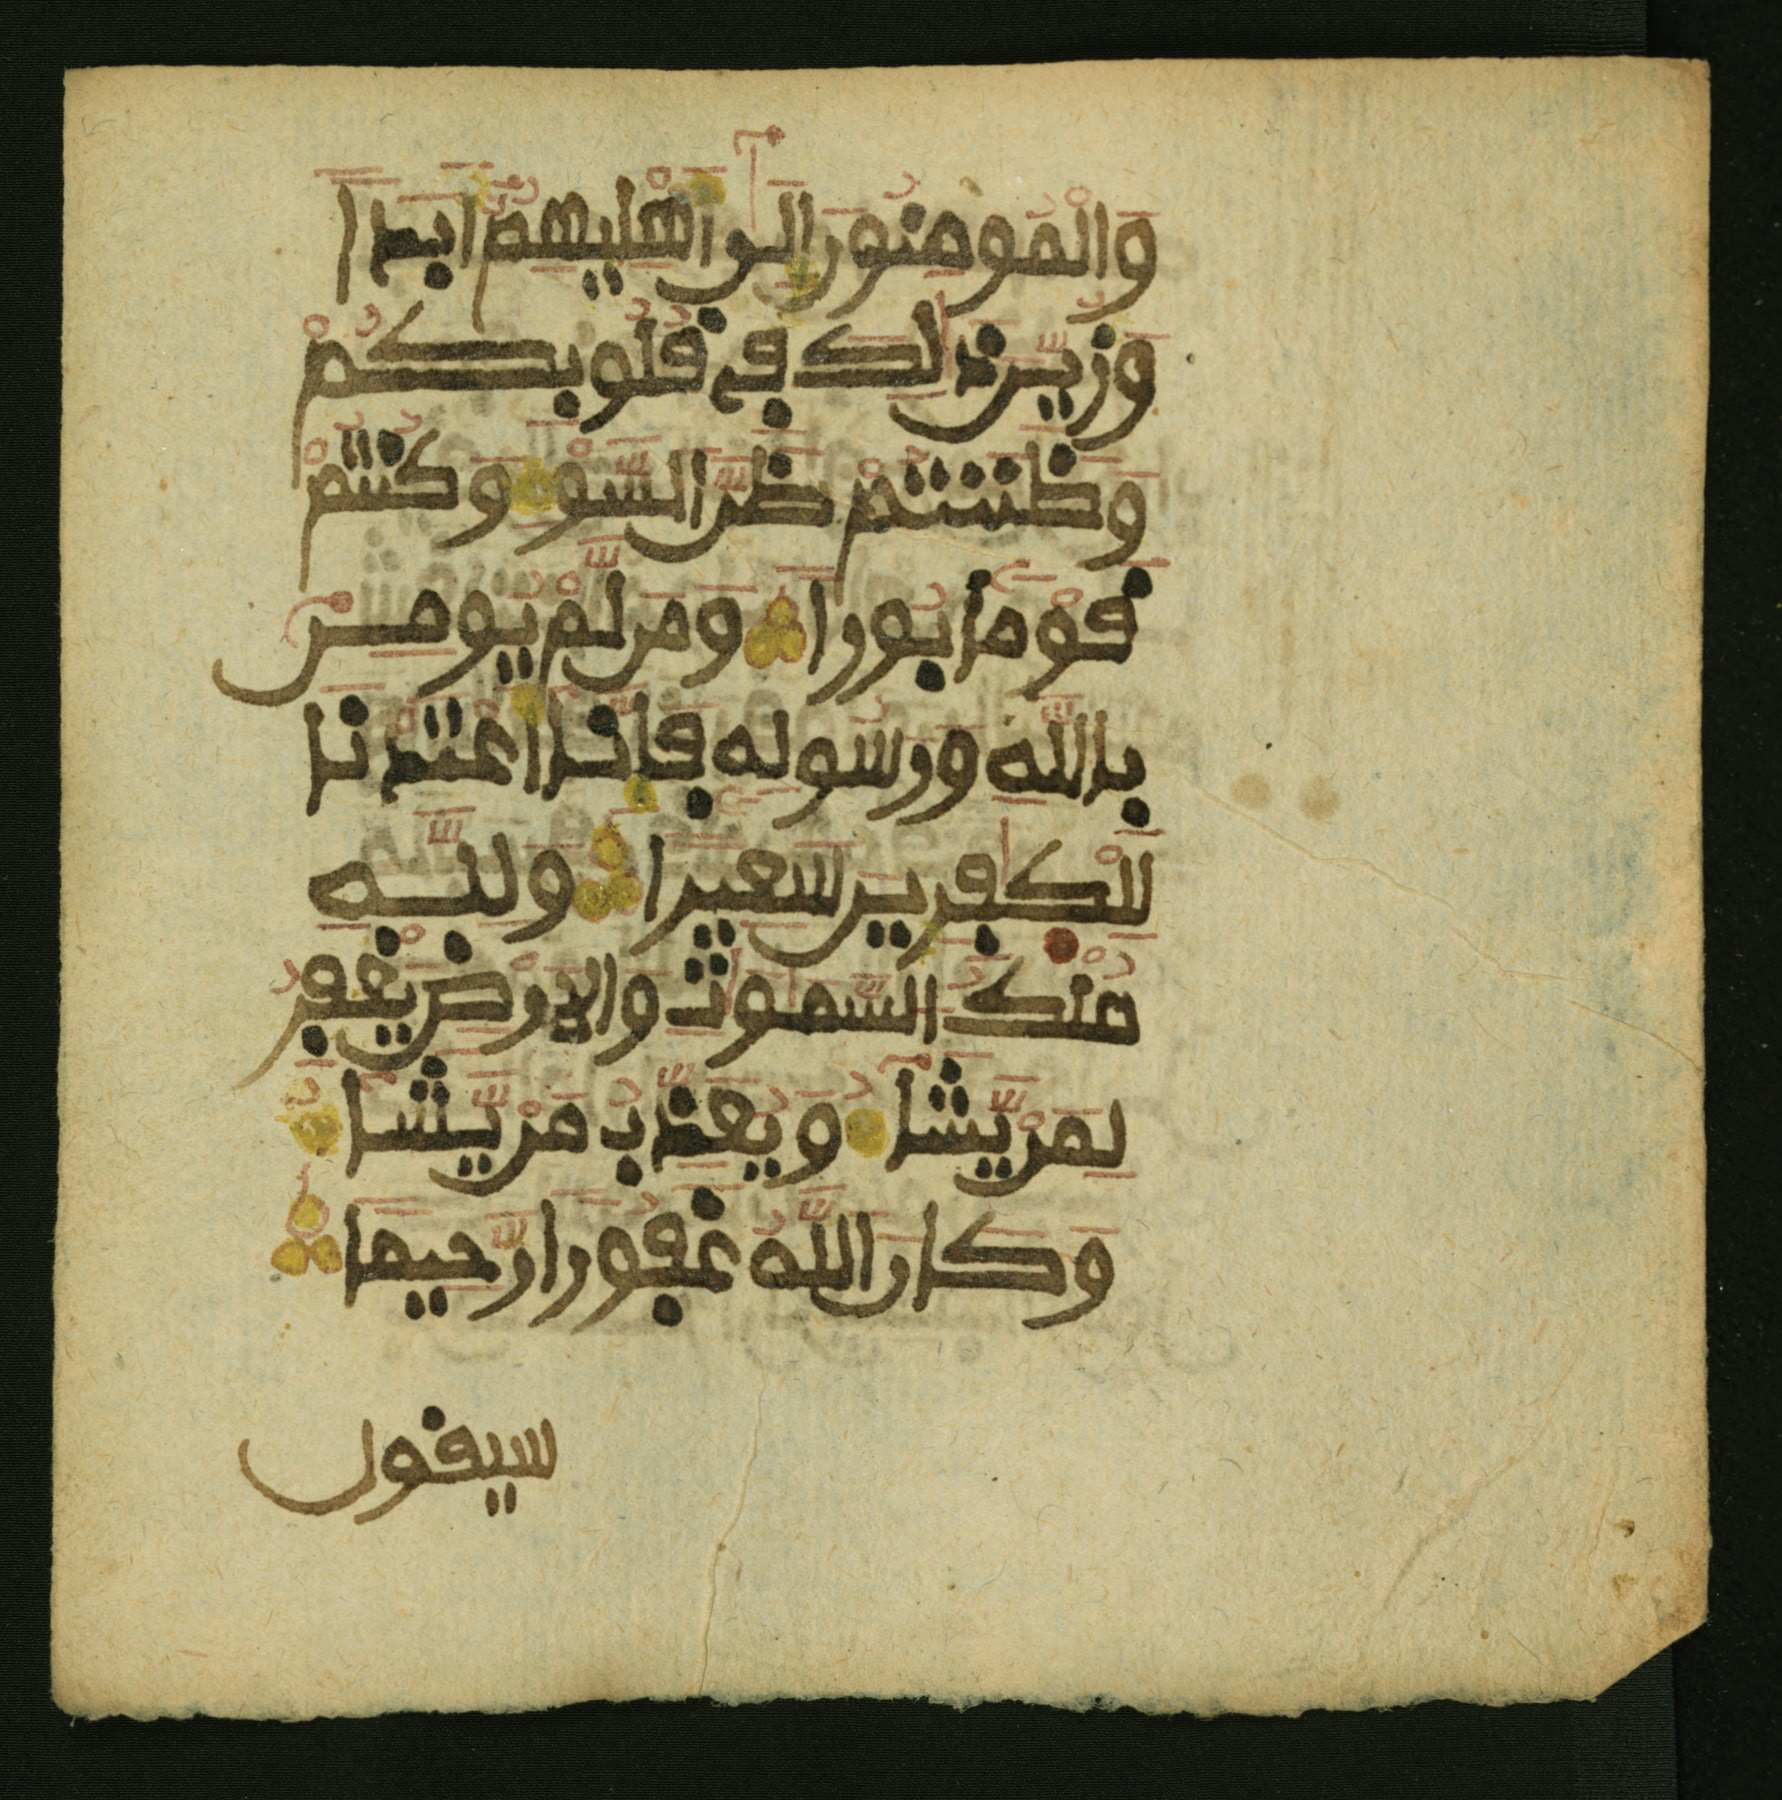 وَالْمُومِنُونَ إِلَىٰٓ أَهْلِيهِمُۥٓ أَبَدًا
وَزُيِّنَ ذَٰلِكَ فِي قُلُوبِكُمْ
وَظَنَنتُمْ ظَنَّ السَّوْءِ وَكُنتُمْ
قَوْمًا بُورًا وَمَن لَّمْ يُومِنۢ
بِاللَّهِ وَرَسُولِهِ فَإِنَّا أَعْتَدْنَا
لِلْكَٰفِرِينَ سَعِيرًا وَلِلَّهِ
مُلْكُ السَّمَٰوَٰتِ وَالْأَرْضِ يَغْفِرُ
لِمَنْ يَّشَآءُ وَيُعَذِّبُ مَنْ يَّشَآءُ
وَكَانَ اللَّهُ غَفُورًا رَّحِيمًا
سيقول